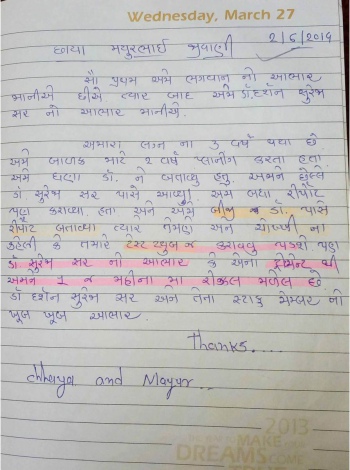 Wednesday, March 27
2/6/2019
છાયા મયુરભાઈ જીવાણી
સૌ પ્રથમ અમે ભગવાન નો આભાર
માનીએ છીએ ત્યાર બાદ અમે ડૉ.દર્શન સુરેજા
સર નો આભાર માનીએ.
અમારા લગ્ન ના 3 વર્ષ થયા છે.
અમે બાળક માટે 2 વર્ષ પ્લાનીંગ કરતા હતા
અમે ઘણા ડૉ. ને બતાવ્યુ હતુ. અમને છેલ્લે
ડૉ સુરેજા સર પાસે આવ્યા. અમે બધા રીપોટ
પણ કરાવ્યા હતા અને અમે બીજા ડૉ. પાસે
રીપોટ બતાવ્યા ત્યારે તેમણે અમને ચોખ્ખી ના
કહેલી કે તમારે ટેસ્ટ ટયુબ જ કરાવવુ પડશે પણ
ડૉ સુરેજા સર નો આભાર કે એના ટ્રીમેન્ટ થી
અમને 1 જ મહીના મા રીઝલ્ટ મળેલ છે.
ડૉ દર્શન સુરેજા સર અને તેના સ્ટાફ મેમ્બર નો
ખૂબ ખૂબ આભાર.
Thanks....
chhaya and Mayur...
2013
MAKE
DREAMS COME